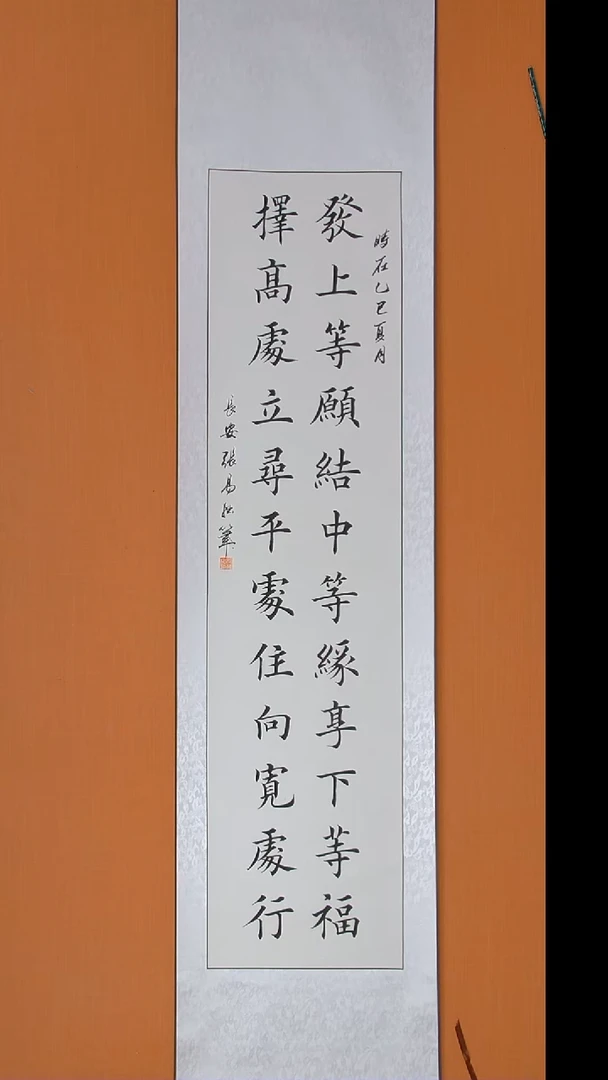 時在乙巳夏月
發上等願結中等緣享下等福
擇高處立尋平處住向寬處行
長安張易